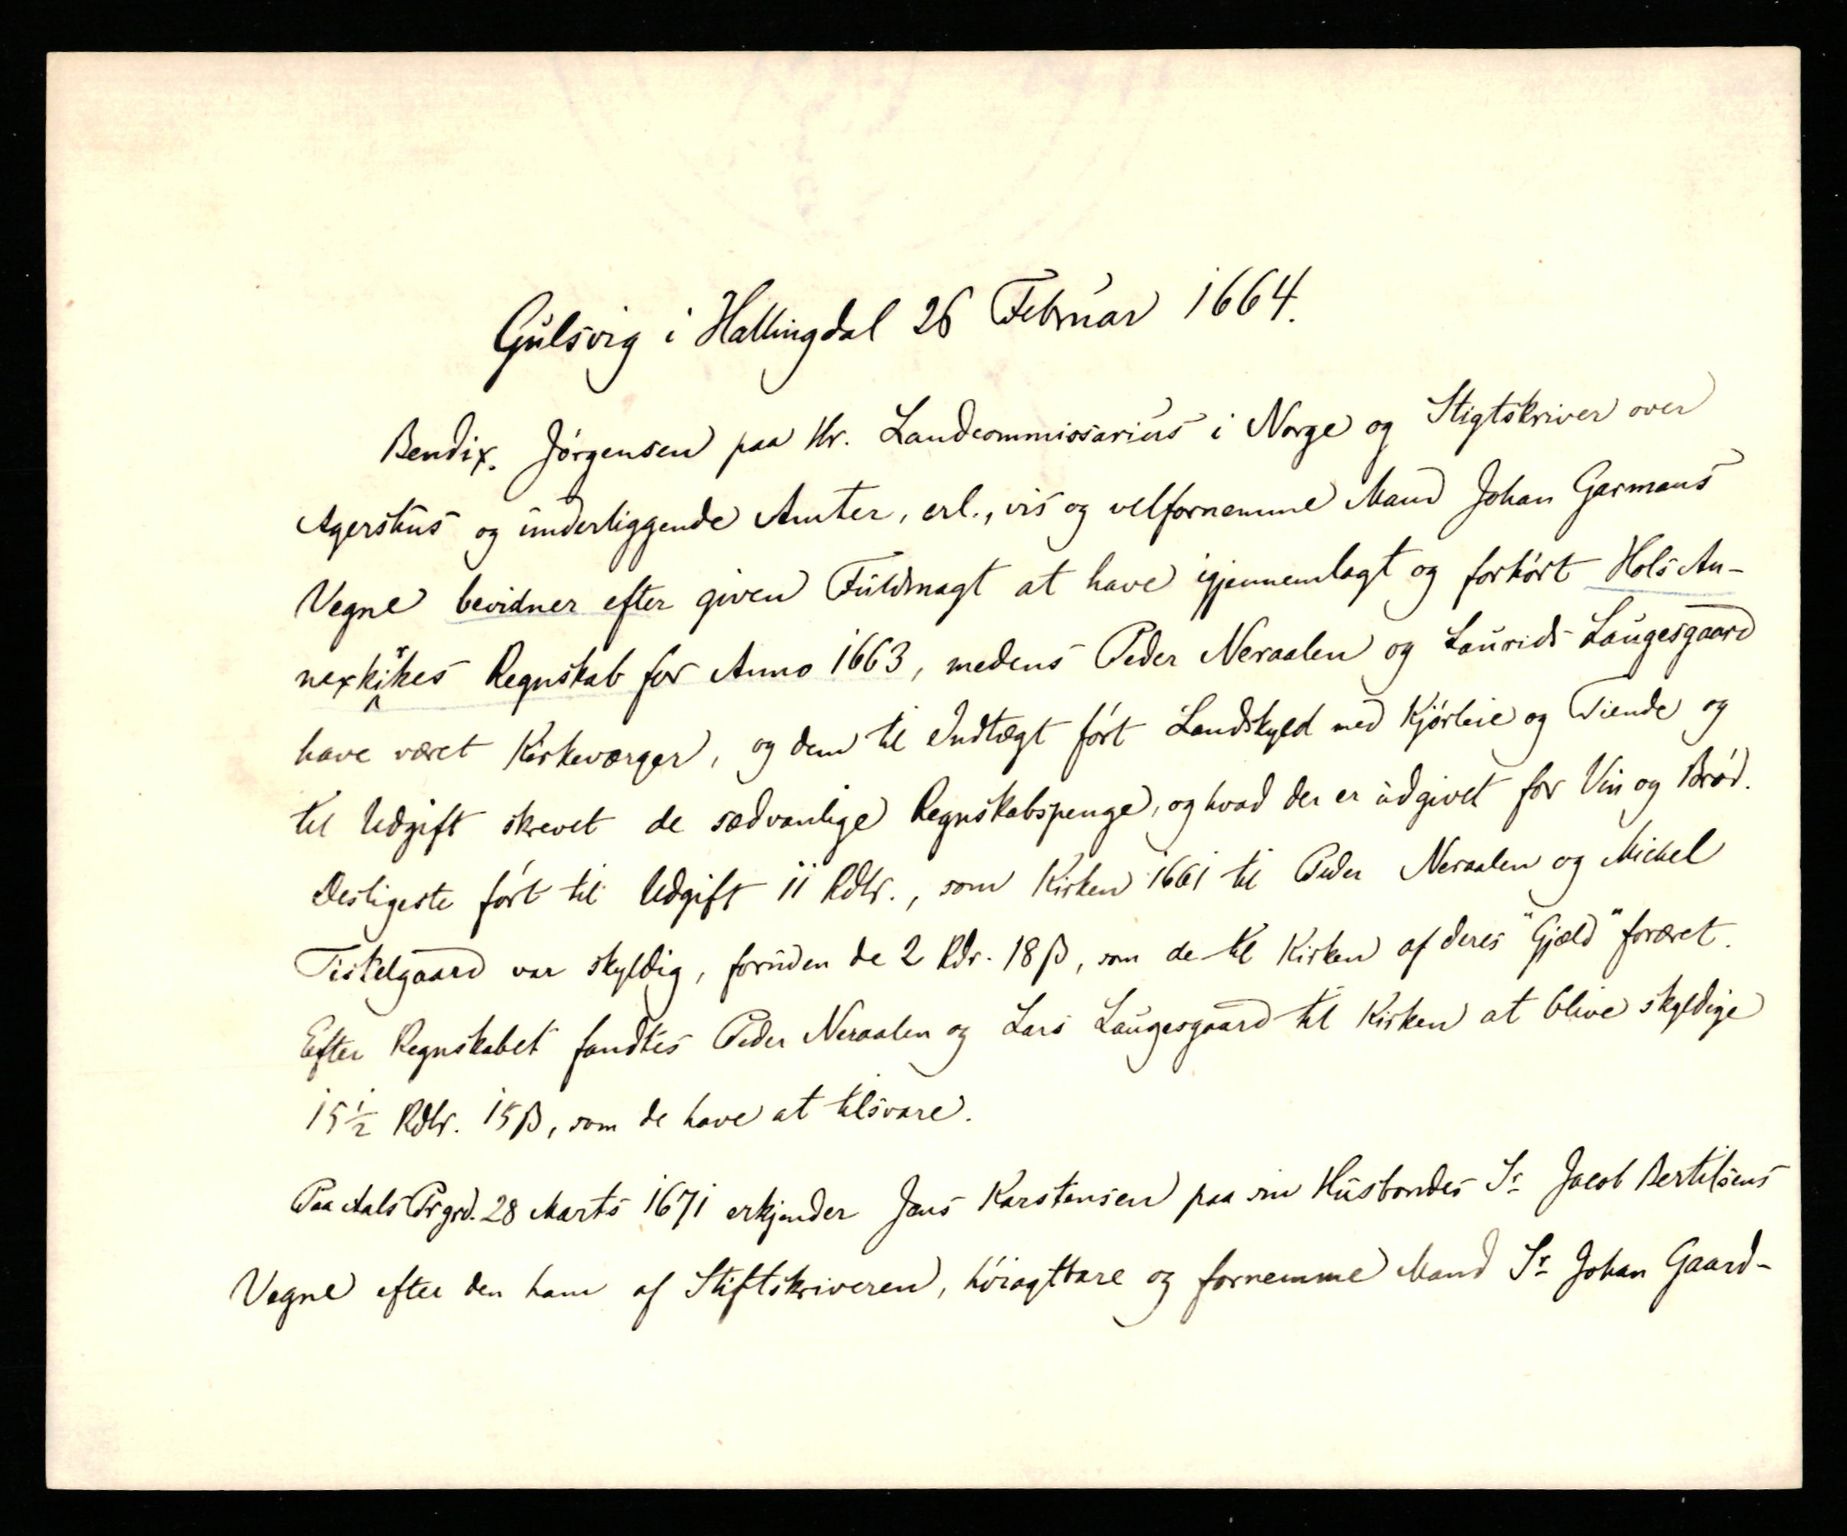 Gulsvig i Hallingdal 26 Februar 1664.
Bendix. Jörgensen paa Hr. Landcommissarius i Norge og Stigtskriver over
Agershus og underliggende Amter, erl., vis og velfornemme Mand Johan Garmans
Vegne bevidner efter given Fuldmagt at have igjennemlagt og forhört Hols An-
nexkirkes Regnskab for Anno 1663, medens Peder Neraalen og Laurids Laugesgaard
have været Kirkeværger, og dem til Indtægt fört Landskyld med Kjörleie og Tiende og
til Udgift skrevet de sædvanlige Regnskabspenge, og hvad der er udgivet for Vin og Bröd.
Desligeste fört til Udgift 11 Rdlr., som Kirken 1661 til Peder Neraalen og Michel
Tistelgaard var skyldig, foruden de 2 Rdr. 18 β, som de til Kirken af deres "Gjæld" foræret.
Efter Regnskabet fandtes Peder Neraalen og Lars Laugesgaard til Kirken at blive skyldige
15 1/2 Rdlr. 15 β, som de have at tilsvare.
Paa Aals Prgrd. 28 Marts 1671 erkjender Jens Karstensen paa sin Husbondes Sr. Jacob Bertelsens
Vegne efter den ham af Stiftskriveren, höiagtbare og fornemme Mand Sr. Johan Gaard-